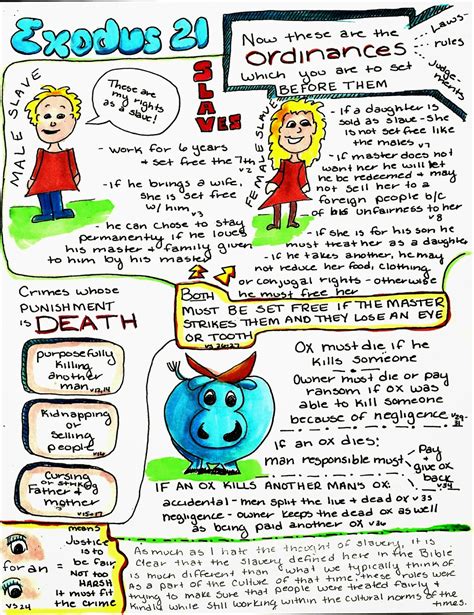 Exodus 21
Now these are the
ORDINANCES
which you are to set
BEFORE THEM
Laws
rules
Judge-
ments
MALE SLAVE
These are
my rights
as a slave!
SLAVES
- work for 6 years
+ set free the 7th v2
- if he brings a wife,
she is set free
w/him v3
- he can chose to stay
permanently if he loves
his master + family given
to him by his master
FEMALE SLAVE
- if a daughter is
sold as slave - she
is not set free like
the males v7
- if master does not
want her he will let
be redeemed + may
not sell her to a
foreign people b/c
of his unfairness to her
v8
- if she is for his son he
must treat her as a daughter
- if he takes another, he may
not reduce her food, clothing
or conjugal rights - otherwise
he must free her
BOTH
MUST BE SET FREE IF THE MASTER
STRIKES THEM AND THEY LOSE AN EYE
OR TOOTH vs 26+27
Crimes whose
PUNISHMENT
is DEATH
purposefully
killing
another
man v12,14
Kidnapping
or
selling
people v16
Cursing
or striking
Father +
mother
v15+17
OX must die if he
kills someone
Owner must die or pay
ransom if ox was
able to kill someone
because of negligence v29-31
if an ox dies:
man responsible must
Pay
+
give ox
back
v34
IF AN OX KILLS ANOTHER MAN'S OX
accidental - men split the live + dead ox v35
negligence - owner keeps the dead ox as well
as being paid another ox v36
for an
means
Justice
is to
be fair
NOT TOO
HARSH
It must fit
the crime
VS 24
As much as I hate the thought of slavery, it is
clear that the slavery defined here in the Bible
is much different than what we typically think of
as a part of the culture of that time; these rules were
trying to make sure that people were treated fairly +
kindly while still working within the cultural norms of the
times